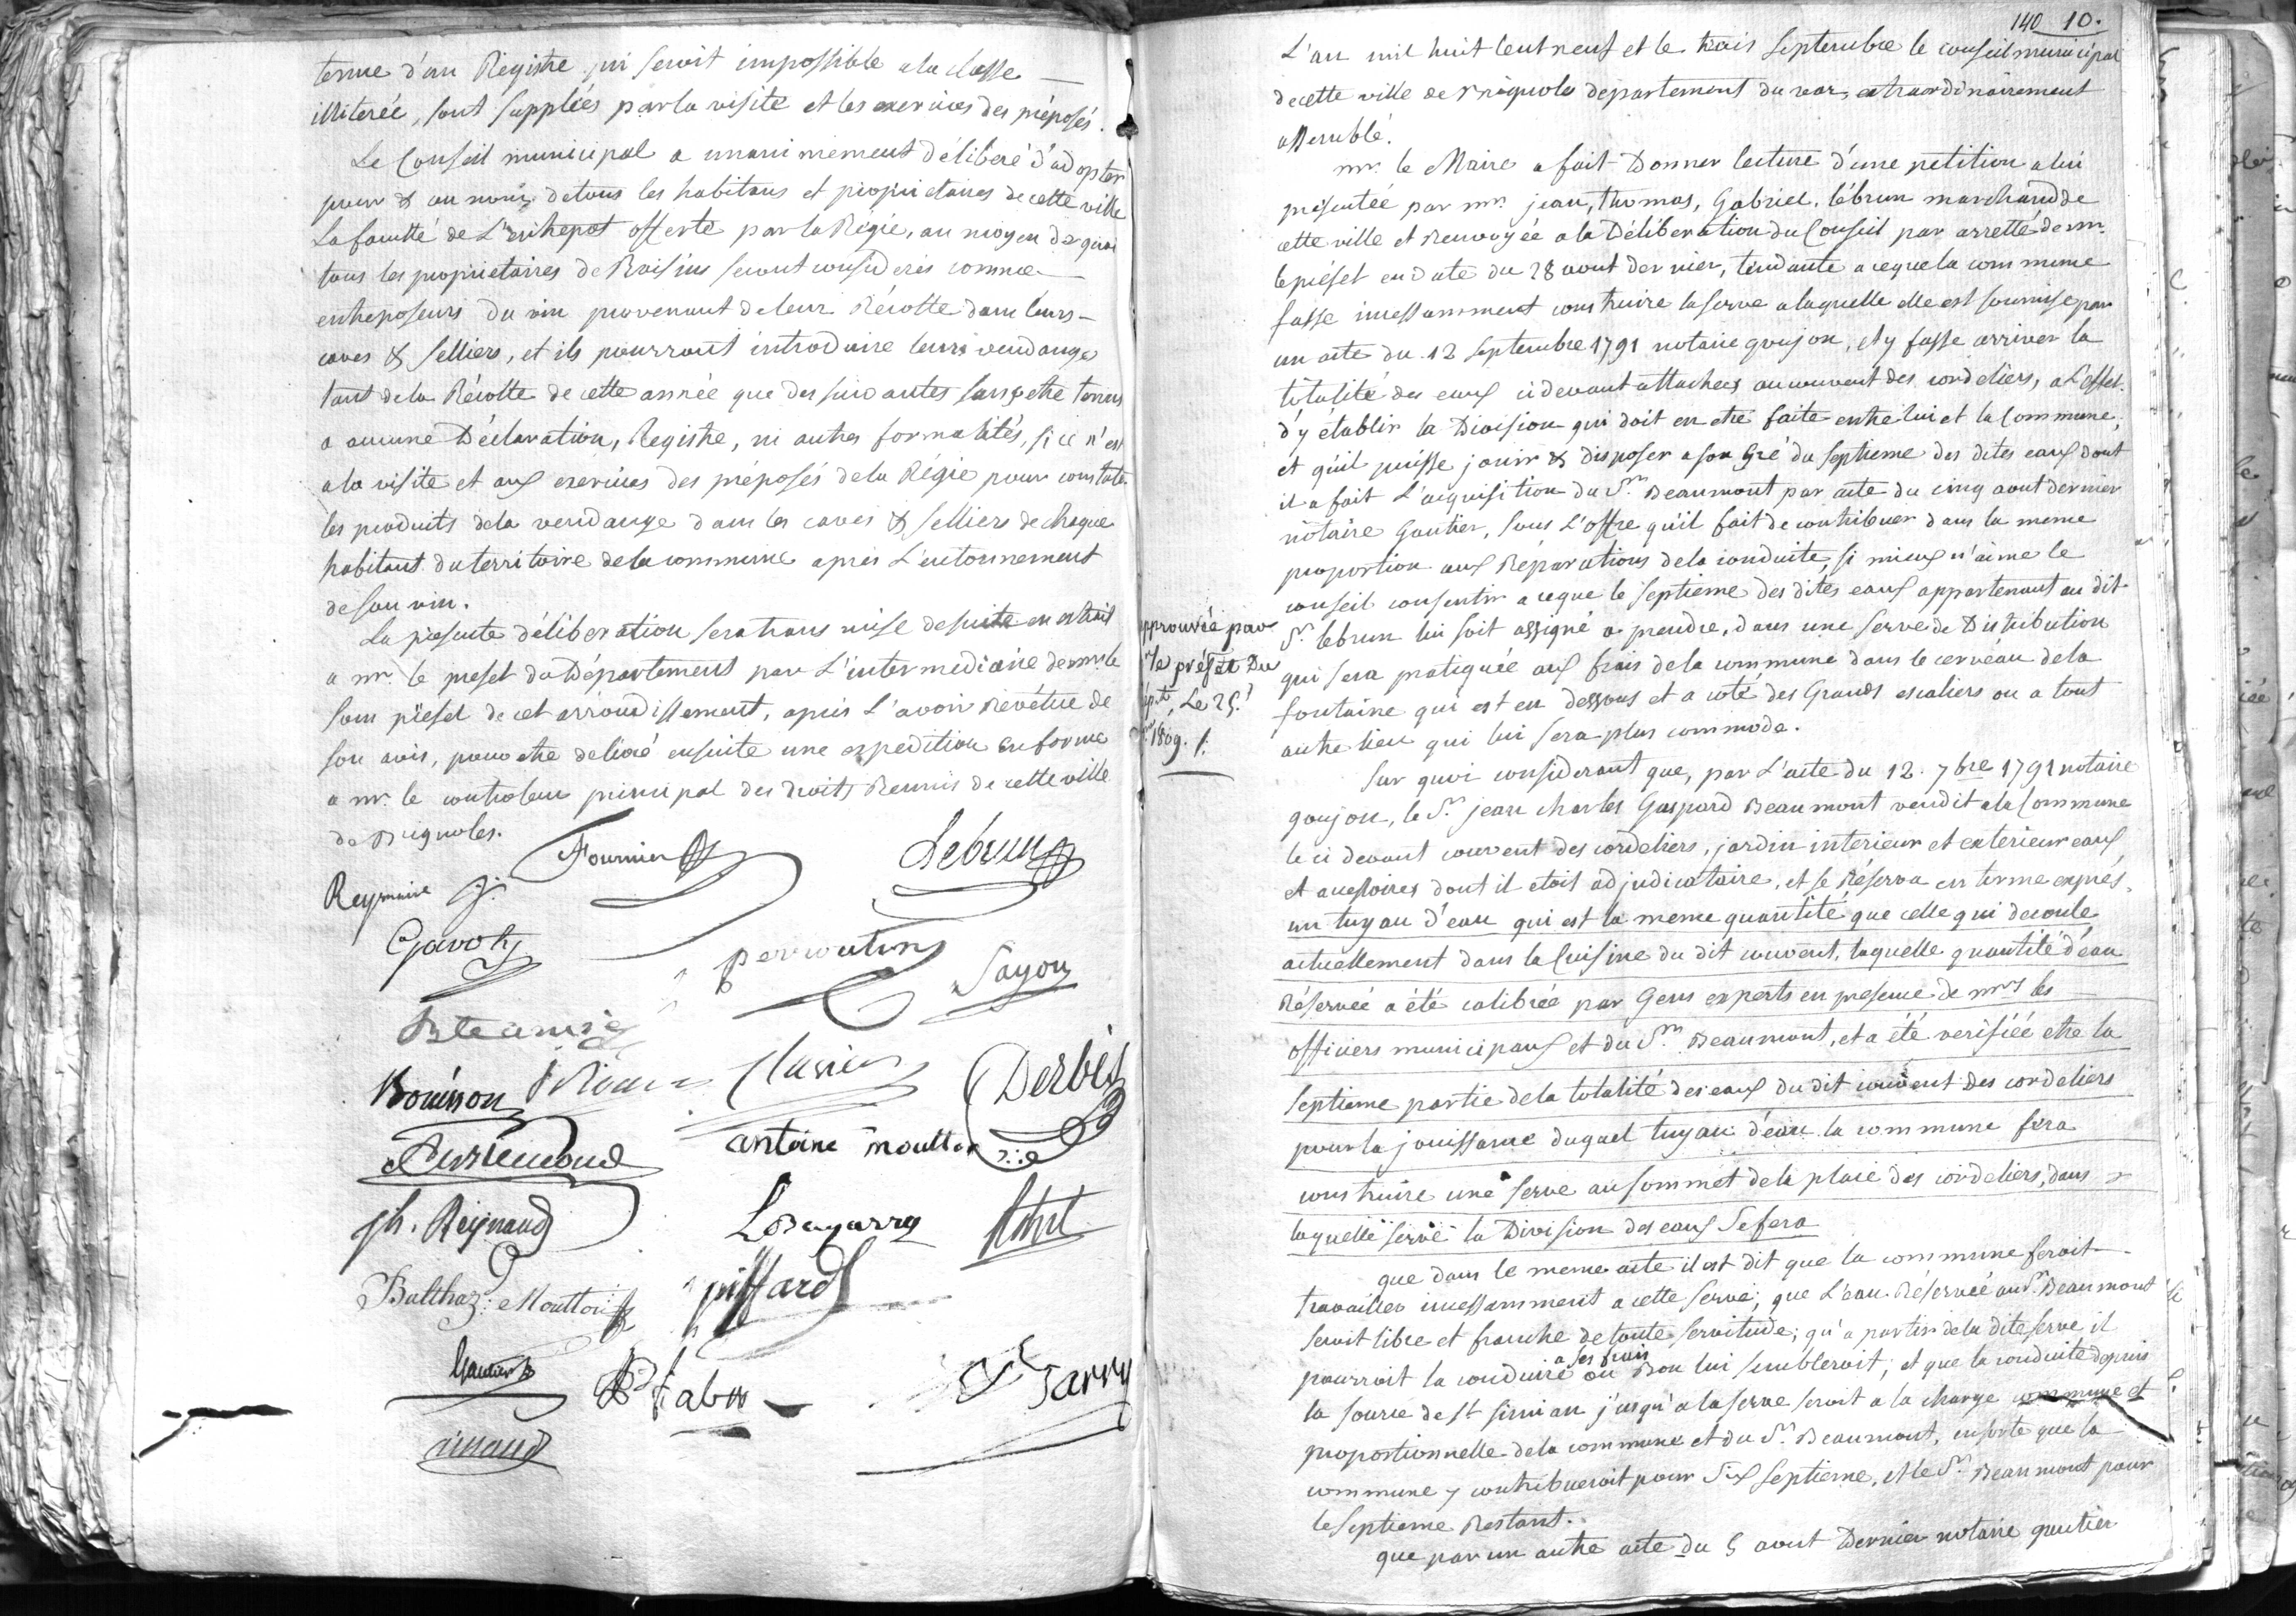 tenue d'un Registre qui seroit impossible a la classe
illiterée, sont suppléés par la visite et les exercices des préposés.
Le Conseil municipal a unanimement déliberé d'adopter
pour & au nom de tous les habitans et proprietaires de cette ville
la faculté de L'entrepot offerte par la Régie, au moyen de quoi
tous les proprietaires de Raisins seront considerés comme
entreposeurs du vin provenant de leur Récolte dans leurs
caves & selliers, et ils pourront introduire leurs vendanges
tant de la Récolte de cette année que des suivantes sans etre tenus
a aucune Déclaration, Registre, ni autres formalités, si ce n'est
a la visite et aux exercices des préposés de la Régie pour constater
les produits de la vendange dans les caves & selliers de chaque
habitant du territoire de la commune après L'entonnement
de son vin.
La présente déliberation sera transmise de suite en extrait
a mr. le prefet du Département par L'intermediaire de mr. le
sous préfet de cet arrondissement, après L'avoir Revétue de
son avis, pour etre délivré ensuite une expedition en forme
a mr. le controleur principal des droits Reunis de cette ville
de Brignoles.
Fournier
Lebrun
Reymoine
Gavoty
Sayou
Bouisson
Clavier
Derbès
antoine moutton
ph. Reynaud
L Bagarry
Balthaz. Moutton
piffard
Gautier
Fabre
Jarry
arnaud
140 10.
L'an mil huit cent neuf et le trois septembre le conseil municipal
de cette ville de Brignoles departement du var, extraordinairement
assemblé.
mr. le Maire a fait Donner lecture d'une petition a lui
présentée par mr. jean, thomas, Gabriel, lebrun marchand de
cette ville et Renvoyée a la Déliberation du Conseil par arretté de mr.
le préfet en date du 28 aout dernier, tendante a ce que la commune
fasse incessamment construire la serve a laquelle elle est soumise par
un acte du 12 septembre 1791 notaire goujon, et y fasse arriver la
totalité des eaux cidevant attachées au couvent des cordeliers, a L'effet
d'y établir la Division qui doit en etre faite entre lui et la Commune,
et qu'il puisse jouir & disposer a son Gré du septieme des dites eaux dont
il a fait L'acquisition du Sr. Beaumont par acte du cinq aout dernier
notaire Gautier, sous L'offre qu'il fait de contribuer dans la meme
proportion aux Réparations de la conduite, si mieux n'aime le
conseil consentir a ce que le septieme des dites eaux appartenant au dit
Sr. lebrun lui soit assigné a prendre, dans une serve de Distribution
qui sera pratiquée aux frais de la commune dans le cerveau de la
fontaine qui est en dessous et a coté des Grands escaliers ou a tout
autre lieu qui lui sera plus commode.
pprouvée par
le préfet Du
Le 25.
1809.
Sur quoi considerant que, par L'acte du 12. 7bre 1791 notaire
goujon, le Sr. jean charles Gaspard Beaumont vendit a la Commune
le ci devant couvent des cordeliers, jardin interieur et exterieur eaux
et accessoires dont il etoit adjudicataire, et se Réserva en terme exprés,
un tuyau d'eau qui est la meme quantité que celle qui decoule
actuellement dans la Cuisine du dit couvent, laquelle quantité d'eau
Réservée a été calibrée par Gens experts en presence de mrs les
officiers municipaux et du Sr. Beaumont, et a été verifiée etre la
septieme partie de la totalité des eaux du dit couvent des cordeliers
pour la jouissance duquel tuyau d'eau la commune fera
construire une serve au sommet de la place des cordeliers, dans
laquelle serve la Division des eaux se fera
que dans le meme acte il est dit que la commune feroit
travailler incessamment a cette serve; que L'eau Réservée au Sr. Beaumont
seroit libre et franche de toute servitude; qu'a partir de la dite serve il
pourroit la conduire a ses frais où Bon lui sembleroit, et que la conduite depuis
la source de St simian jusqu'a la serve seroit a la charge commune et
proportionnelle de la commune et du Sr. Beaumont, ensorte que la
commune y contribueroit pour Six septieme, et le Sr. Beaumont pour
le septieme Restant.
que par un autre acte du 5 aout Dernier notaire gautier